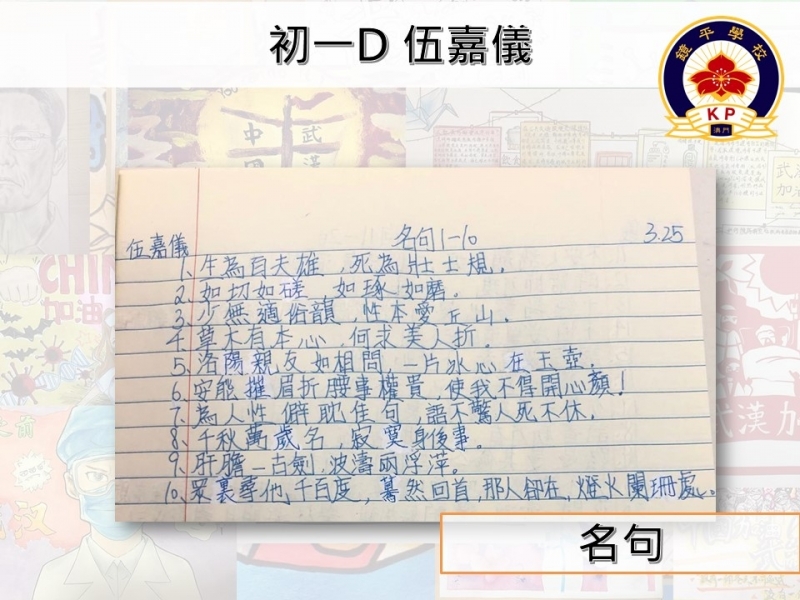 初一D 伍嘉儀
鏡平學校
KP
澳門
伍嘉儀 名句1-10 3.25
1、生為百夫雄，死為壯士規。
2、如切如磋，如琢如磨。
3、少無適俗韻，性本愛丘山。
4、草木有本心，何求美人折。
5、洛陽親友如相問，一片冰心在玉壺。
6、安能摧眉折腰事權貴，使我不得開心顏！
7、為人性僻耽佳句，語不驚人死不休。
8、千秋萬歲名，寂寞身後事。
9、肝膽一古劍，波濤兩浮萍。
10、眾裏尋他千百度，驀然回首，那人卻在，燈火闌珊處。
名句
武漢
中國
CHIN
加油
武漢加